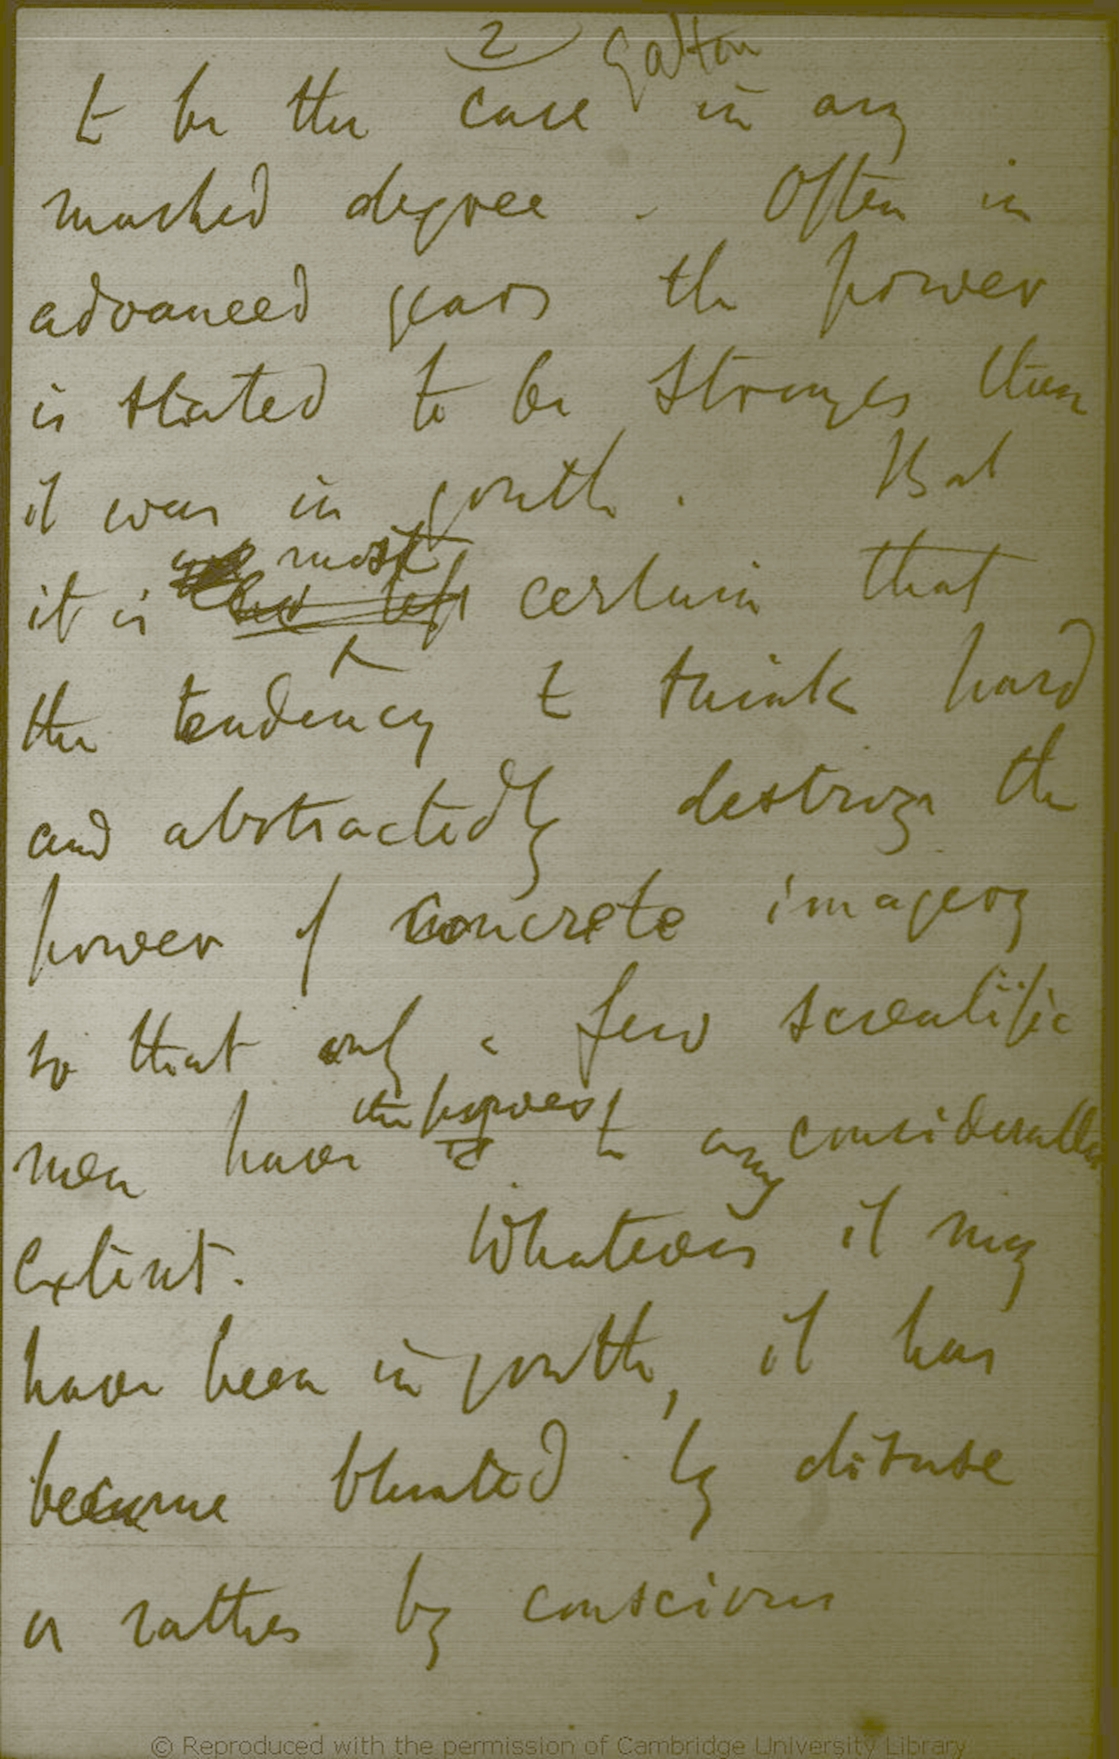 2 Galton
to be the case in any
marked degree. Often in
advanced years the power
is stated to be stronger than
it was in youth. But
it is most certain that
the tendency to think hard
and abstractedly destroys the
power of concrete imagery
so that only a few scientific
men have the power to any considerable
extent. Whatever it may
have been in youth, it has
become blunted by disuse
or rather by conscious
© Reproduced with the permission of Cambridge University Library